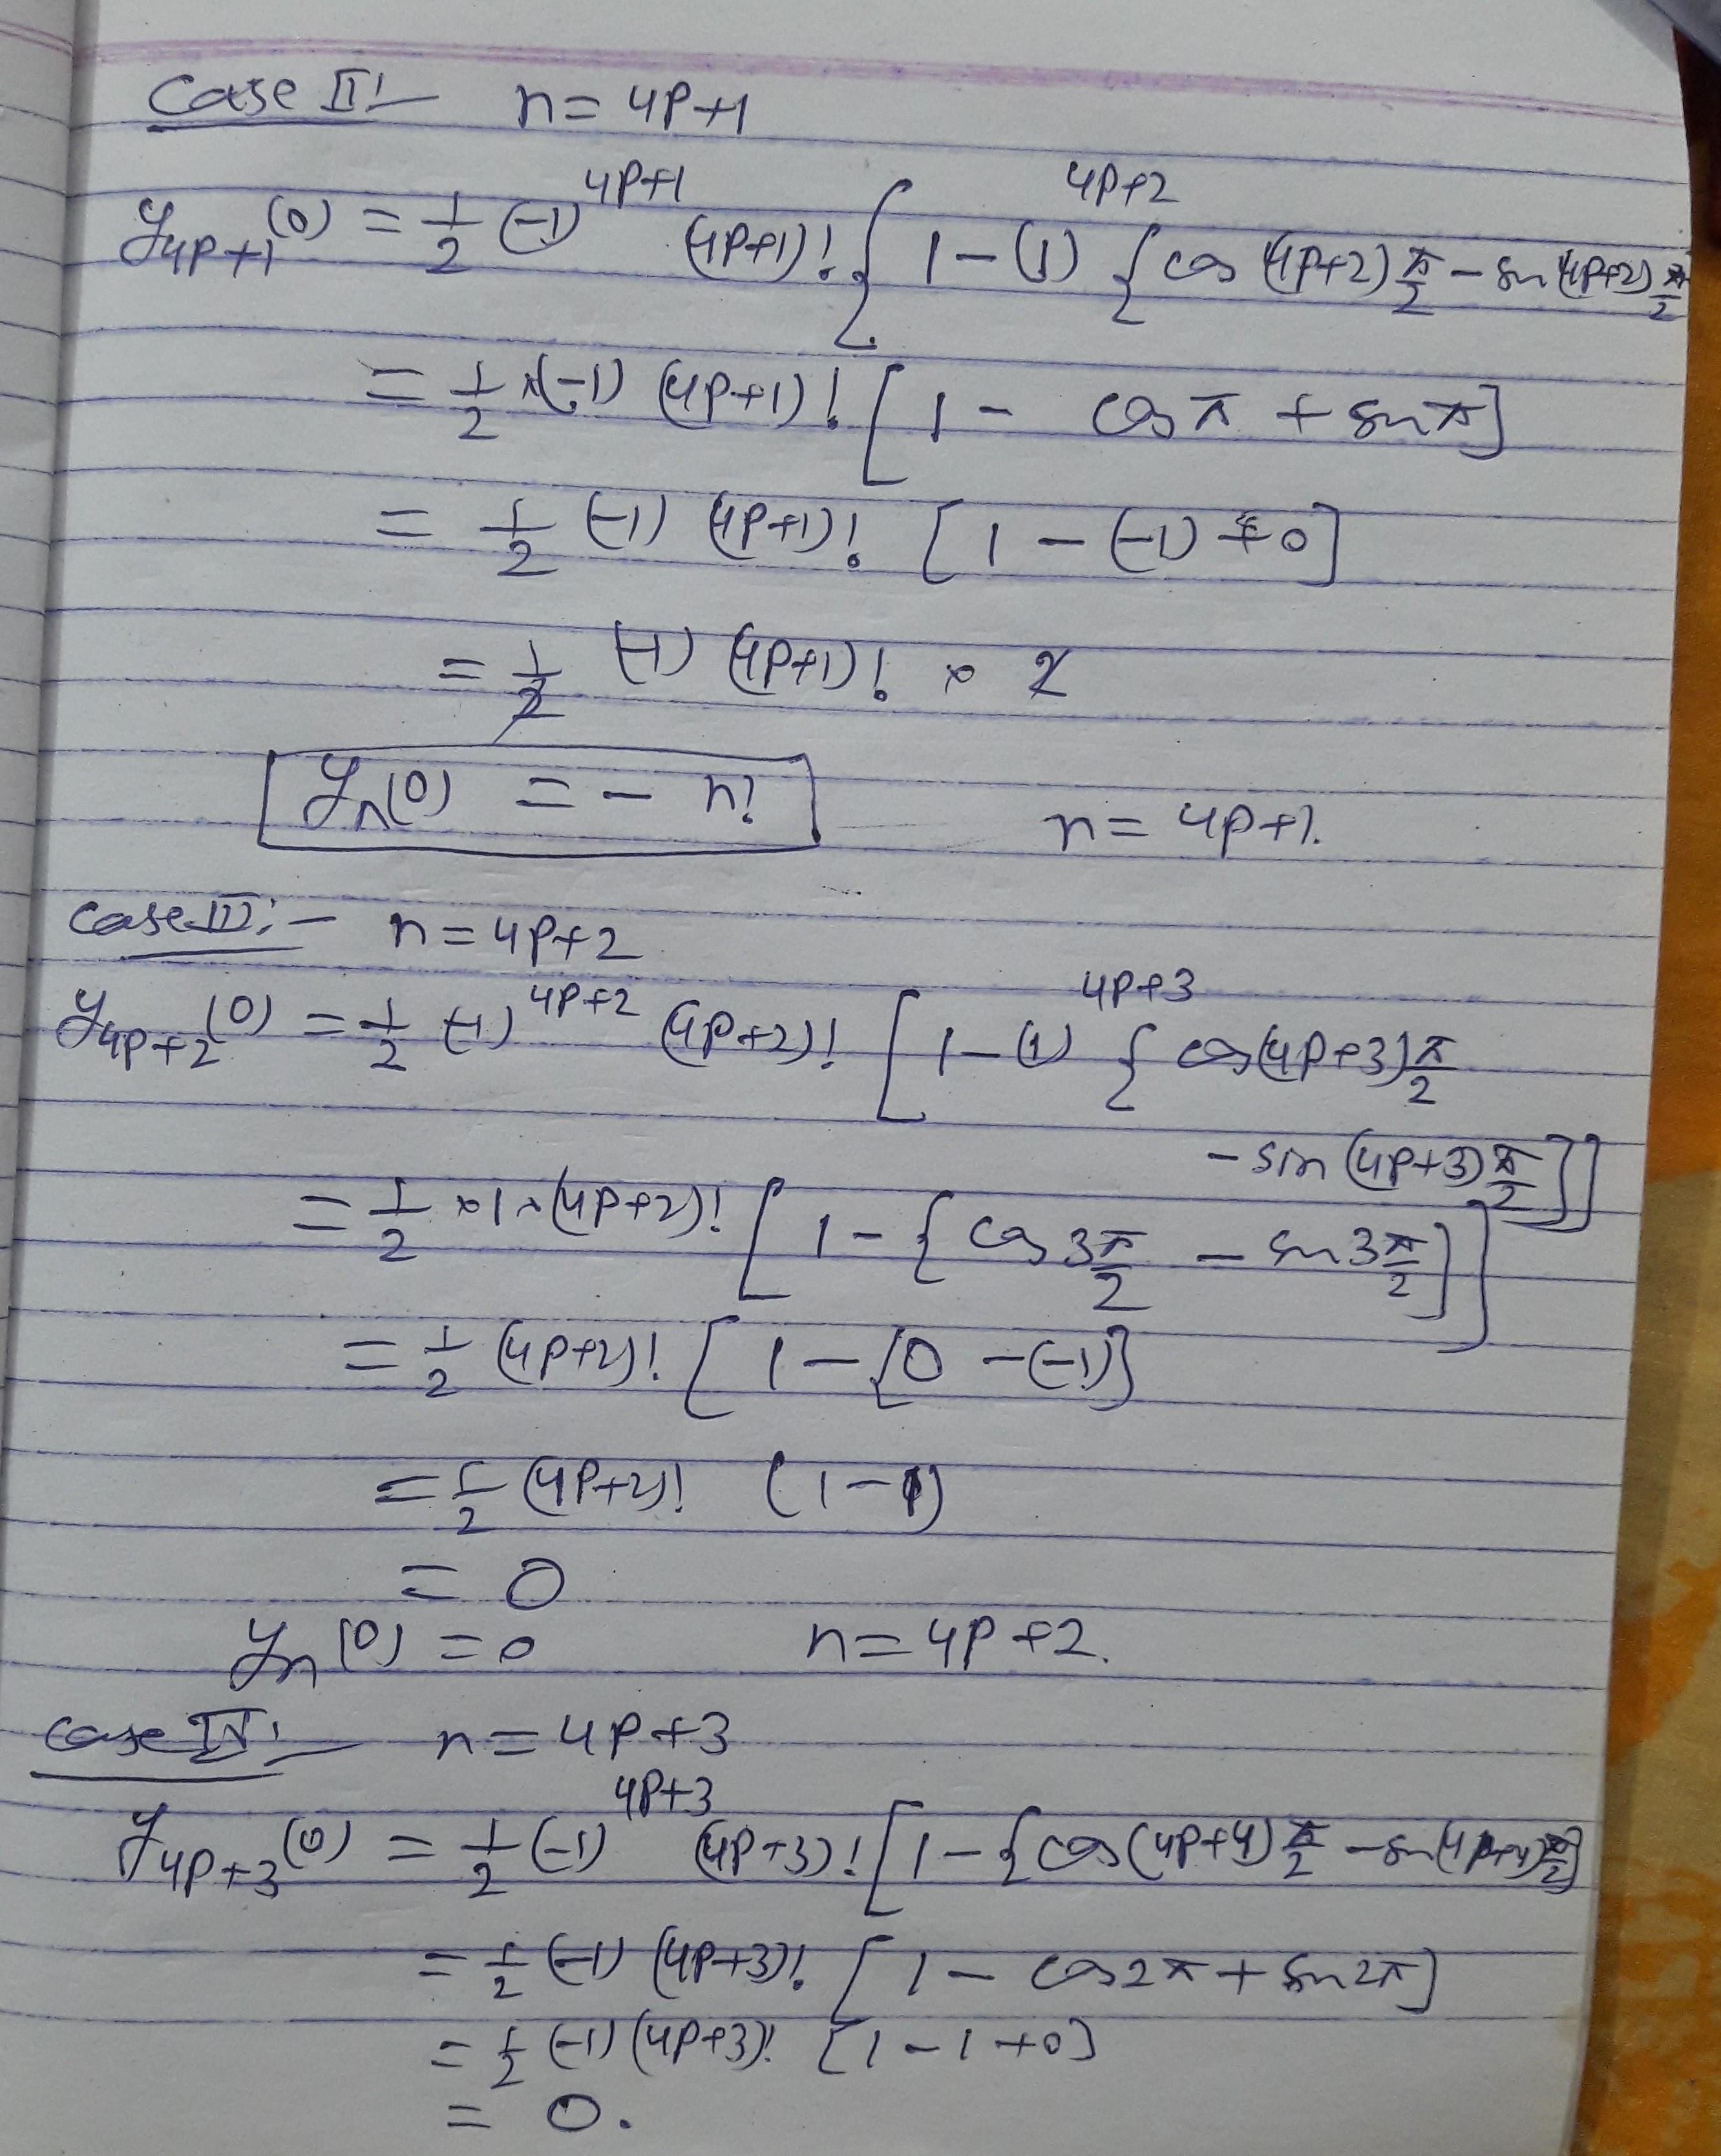 Case II:- n = 4p+1
y_{4p+1}(0) = 1/2 (-1)^{4p+1} (4p+1)! { 1-(1)^{4p+2} { cos (4p+2) π/2 - sin (4p+2) π/2
= 1/2 × (-1) (4p+1)! [ 1 - cos π + sin π ]
= 1/2 (-1) (4p+1)! [ 1 - (-1) + 0 ]
= 1/2 (-1) (4p+1)! × 2
y_n(0) = - n! n = 4p+1.
Case III:- n = 4p+2
y_{4p+2}(0) = 1/2 (-1)^{4p+2} (4p+2)! [ 1-(1)^{4p+3} { cos(4p+3) π/2
- sin (4p+3) π/2 }]
= 1/2 × 1 × (4p+2)! [ 1 - { cos 3π/2 - sin 3π/2 }]
= 1/2 (4p+2)! [ 1 - {0 - (-1)}
= 1/2 (4p+2)! (1-1)
= 0
y_n(0) = 0 n = 4p+2.
Case IV:- n = 4p+3
y_{4p+3}(0) = 1/2 (-1)^{4p+3} (4p+3)! [ 1 - { cos (4p+4) π/2 - sin (4p+4) π/2 }
= 1/2 (-1) (4p+3)! [ 1 - cos 2π + sin 2π ]
= 1/2 (-1) (4p+3)! [ 1 - 1 + 0 ]
= 0.